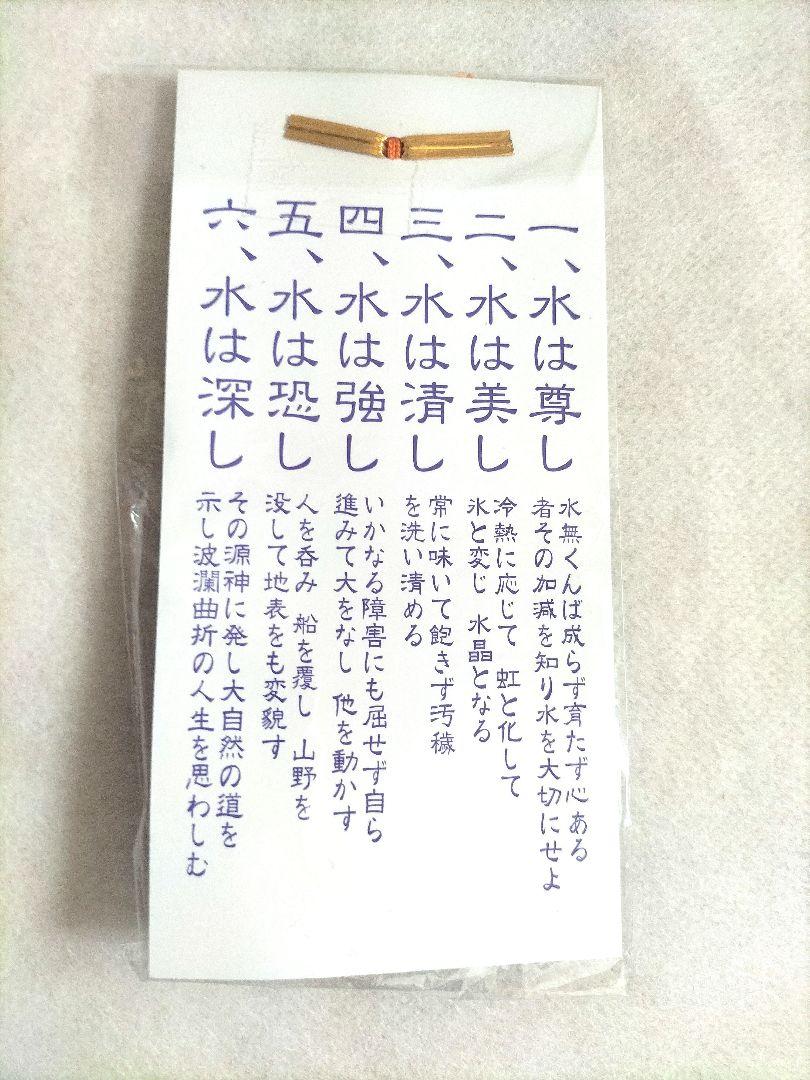 一、水は尊し
水無くんば成らず育たず心ある
者その加減を知り水を大切にせよ
二、水は美し
冷熱に応じて 虹と化して
氷と変じ 水晶となる
三、水は清し
常に味いて飽きず汚穢
を洗い清める
四、水は強し
いかなる障害にも屈せず自ら
進みて大をなし 他を動かす
五、水は恐し
人を呑み 船を覆し 山野を
没して地表をも変貌す
六、水は深し
その源神に発し大自然の道を
示し波瀾曲折の人生を思わしむ